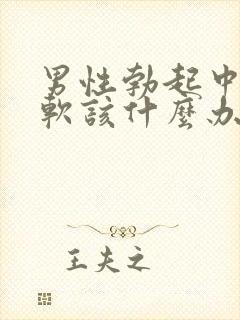 男性勃起中
軟該什麼办
王夫之